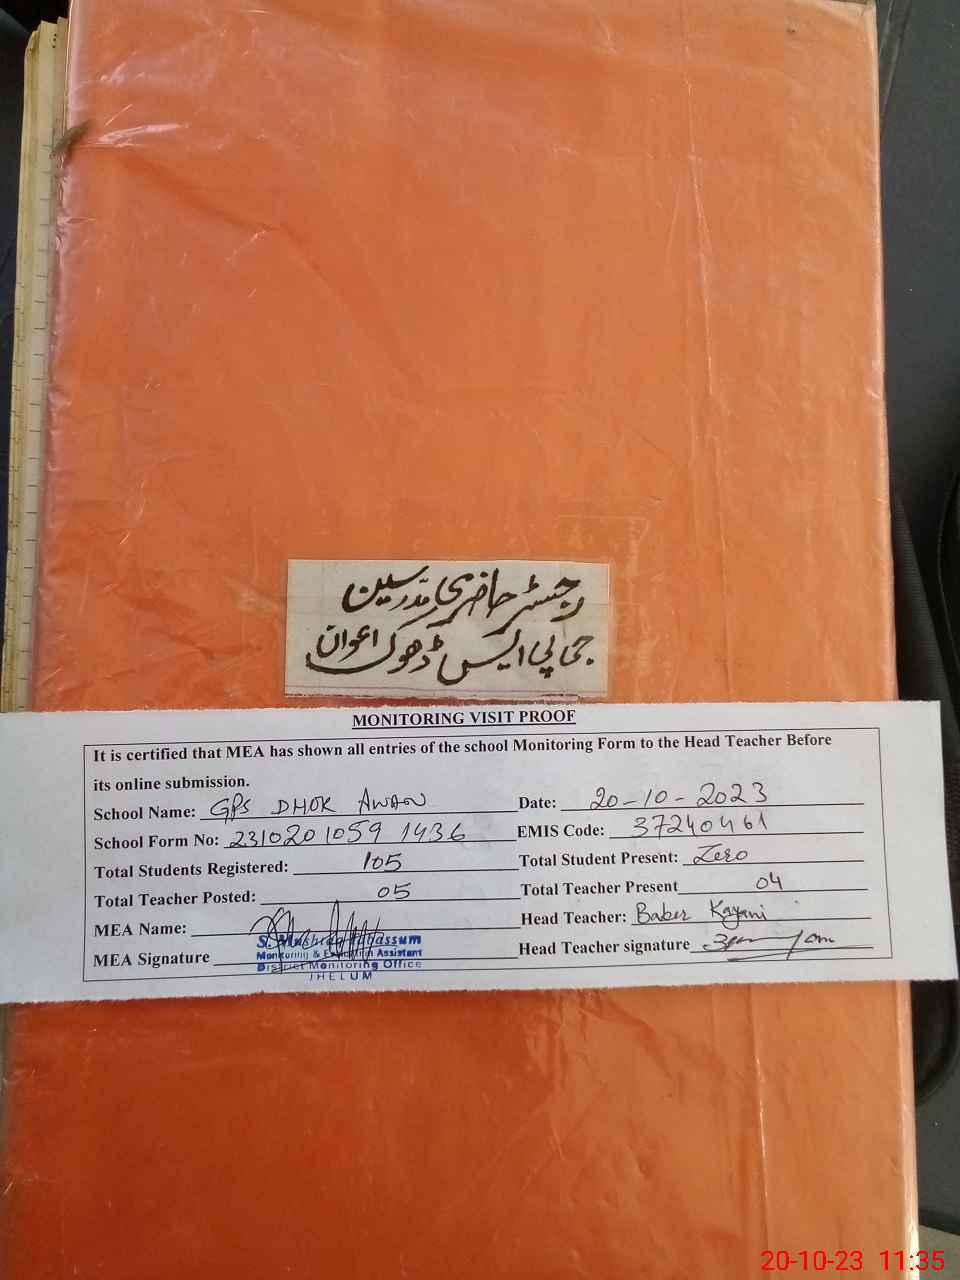 رجسٹر حاضری مدرسین
جی پی ایس ڈھوک اعوان
MONITORING VISIT PROOF
It is certified that MEA has shown all entries of the school Monitoring Form to the Head Teacher Before
its online submission.
School Name: GPS DHOK AWAN Date: 20-10-2023
School Form No: 2310201059 1436 EMIS Code: 37240461
Total Students Registered: 105 Total Student Present: Zero
Total Teacher Posted: 05 Total Teacher Present 04
MEA Name: Head Teacher: Baber Kayani
S. Tabassum
Monitoring & Assistant
MEA Signature Head Teacher signature
District Monitoring Office
JHELUM
20-10-23 11:35